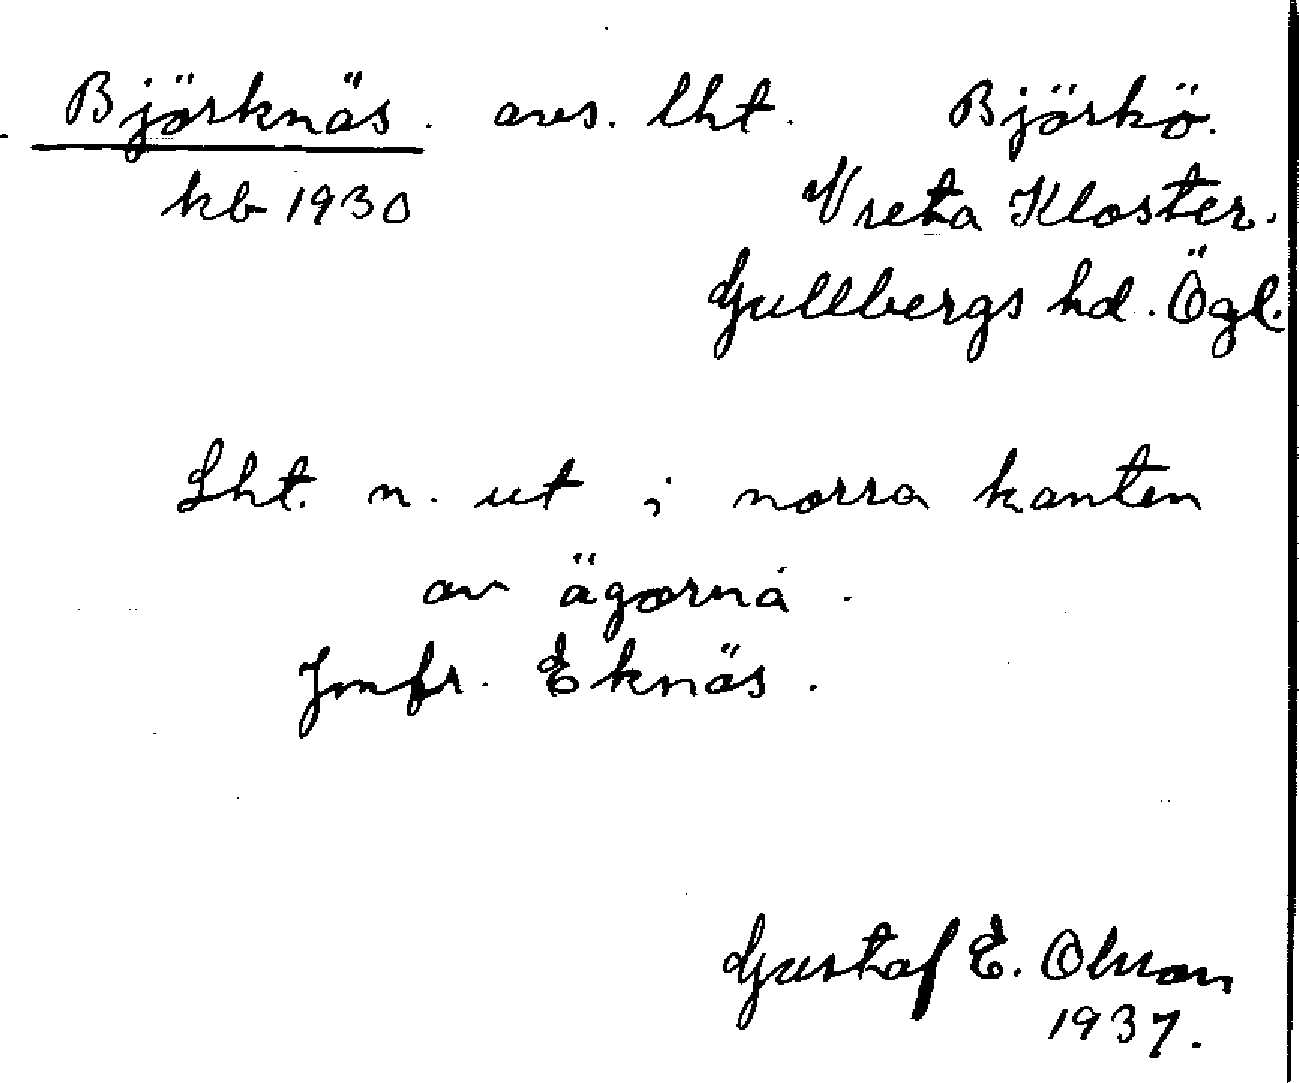 Björknäs. avs. lht. Björkö.
kb 1930 Vreta Kloster.
Gullbergs hd. Ögl.
Lht. n. ut i norra kanten
av ägorna.
Jmfr. Eknäs.
Gustaf E. Olsson
1937.